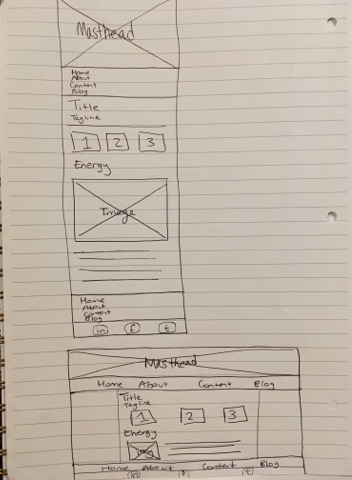 Masthead
Home
About
Content
Blog
Title
Tagline
1 2 3
Energy
Image
Home
About
Content
Blog
in f t
Masthead
Home About Content Blog
Title
Tagline
1 2 3
Energy
Home About Content Blog
in f t